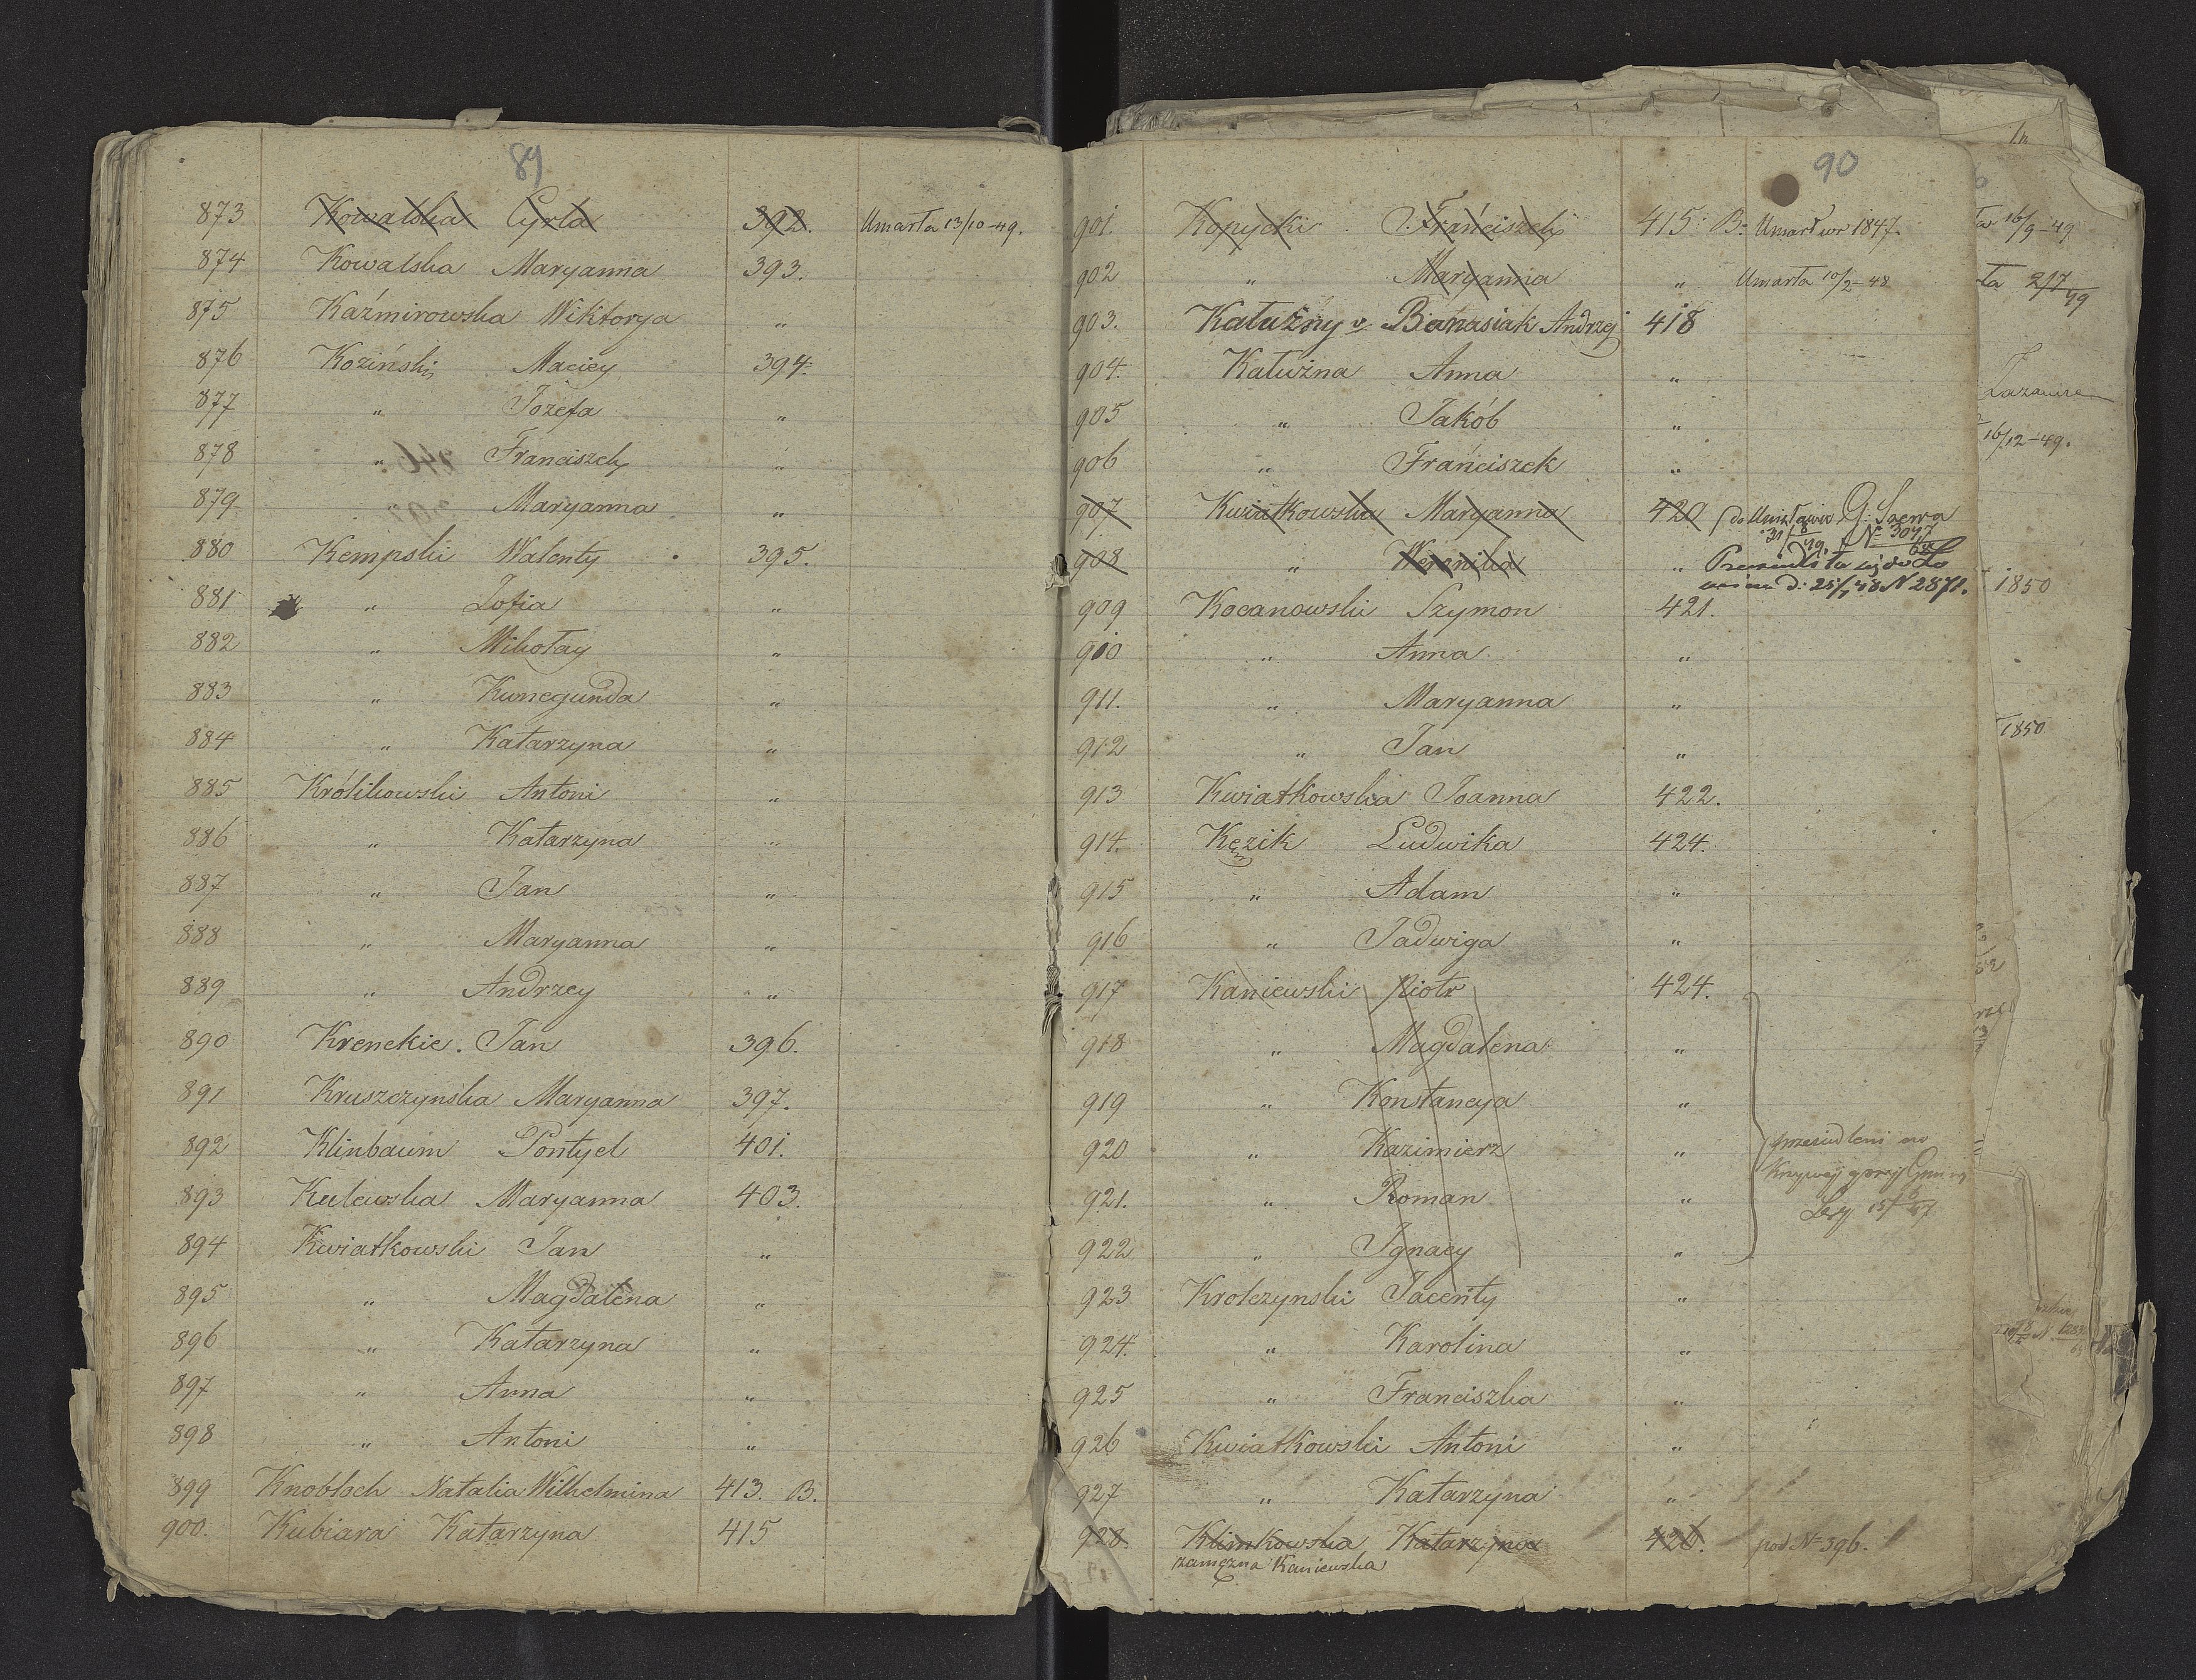 89
873 Kowalska Cyrla 392. Umarła 13/10-49.
874 Kowalska Maryanna 393.
875 Kaźmirowska Wiktorya "
876 Koziński Maciey 394.
877 " Józefa "
878 " Franciszek "
879 " Maryanna "
880 Kempski Walenty 395.
881 " Zofia "
882 " Mikołay "
883 " Kunegunda "
884 " Katarzyna "
885 Królikowski Antoni "
886 " Katarzyna "
887 " Jan "
888 " Maryanna "
889 " Andrzey "
890 Krenckie. Jan 396.
891 Kruszczynska Maryanna 397.
892 Klinbaum Pontyel 401.
893 Kulewska Maryanna 403.
894 Kwiatkowski Jan "
895 " Magdalena "
896 " Katarzyna "
897 " Anna "
898 " Antoni "
899 Knobloch Natalia Wilhelmina 413. B.
900. Kubiara Katarzyna 415
90
901. Kopycki Franciszek 415. B. Umarł w r 1847.
902 " Maryanna " Umarła 10/2-48
903. Kałużny v. Banasiak Andrzej 418
904. Kałużna Anna "
905 " Jakób "
906 " Franciszek "
907 Kwiatkowska Maryanna 420
908 " "
25/ 48 N 2871.
909 Kocanowski Szymon 421.
910 " Anna "
911. " Maryanna "
912 " Jan "
913 Kwiatkowska Joanna 422.
914. Kęzik Ludwika 424.
915 " Adam "
916 " Jadwiga "
917 Kaniewski Piotr 424.
918 " Magdalena "
919 " Konstancya "
920 " Kazimierz "
921. " Roman "
922 " Ignacy "
923 Krolczynski Jacenty "
924. " Karolina "
925 " Franciszka "
926 Kwiatkowski Antoni "
927 " Katarzyna "
928. Klimkowska Katarzyna 426. pod N 396.
zamężna Kaniewska
16/9-49
16/12-49.
1850
1850